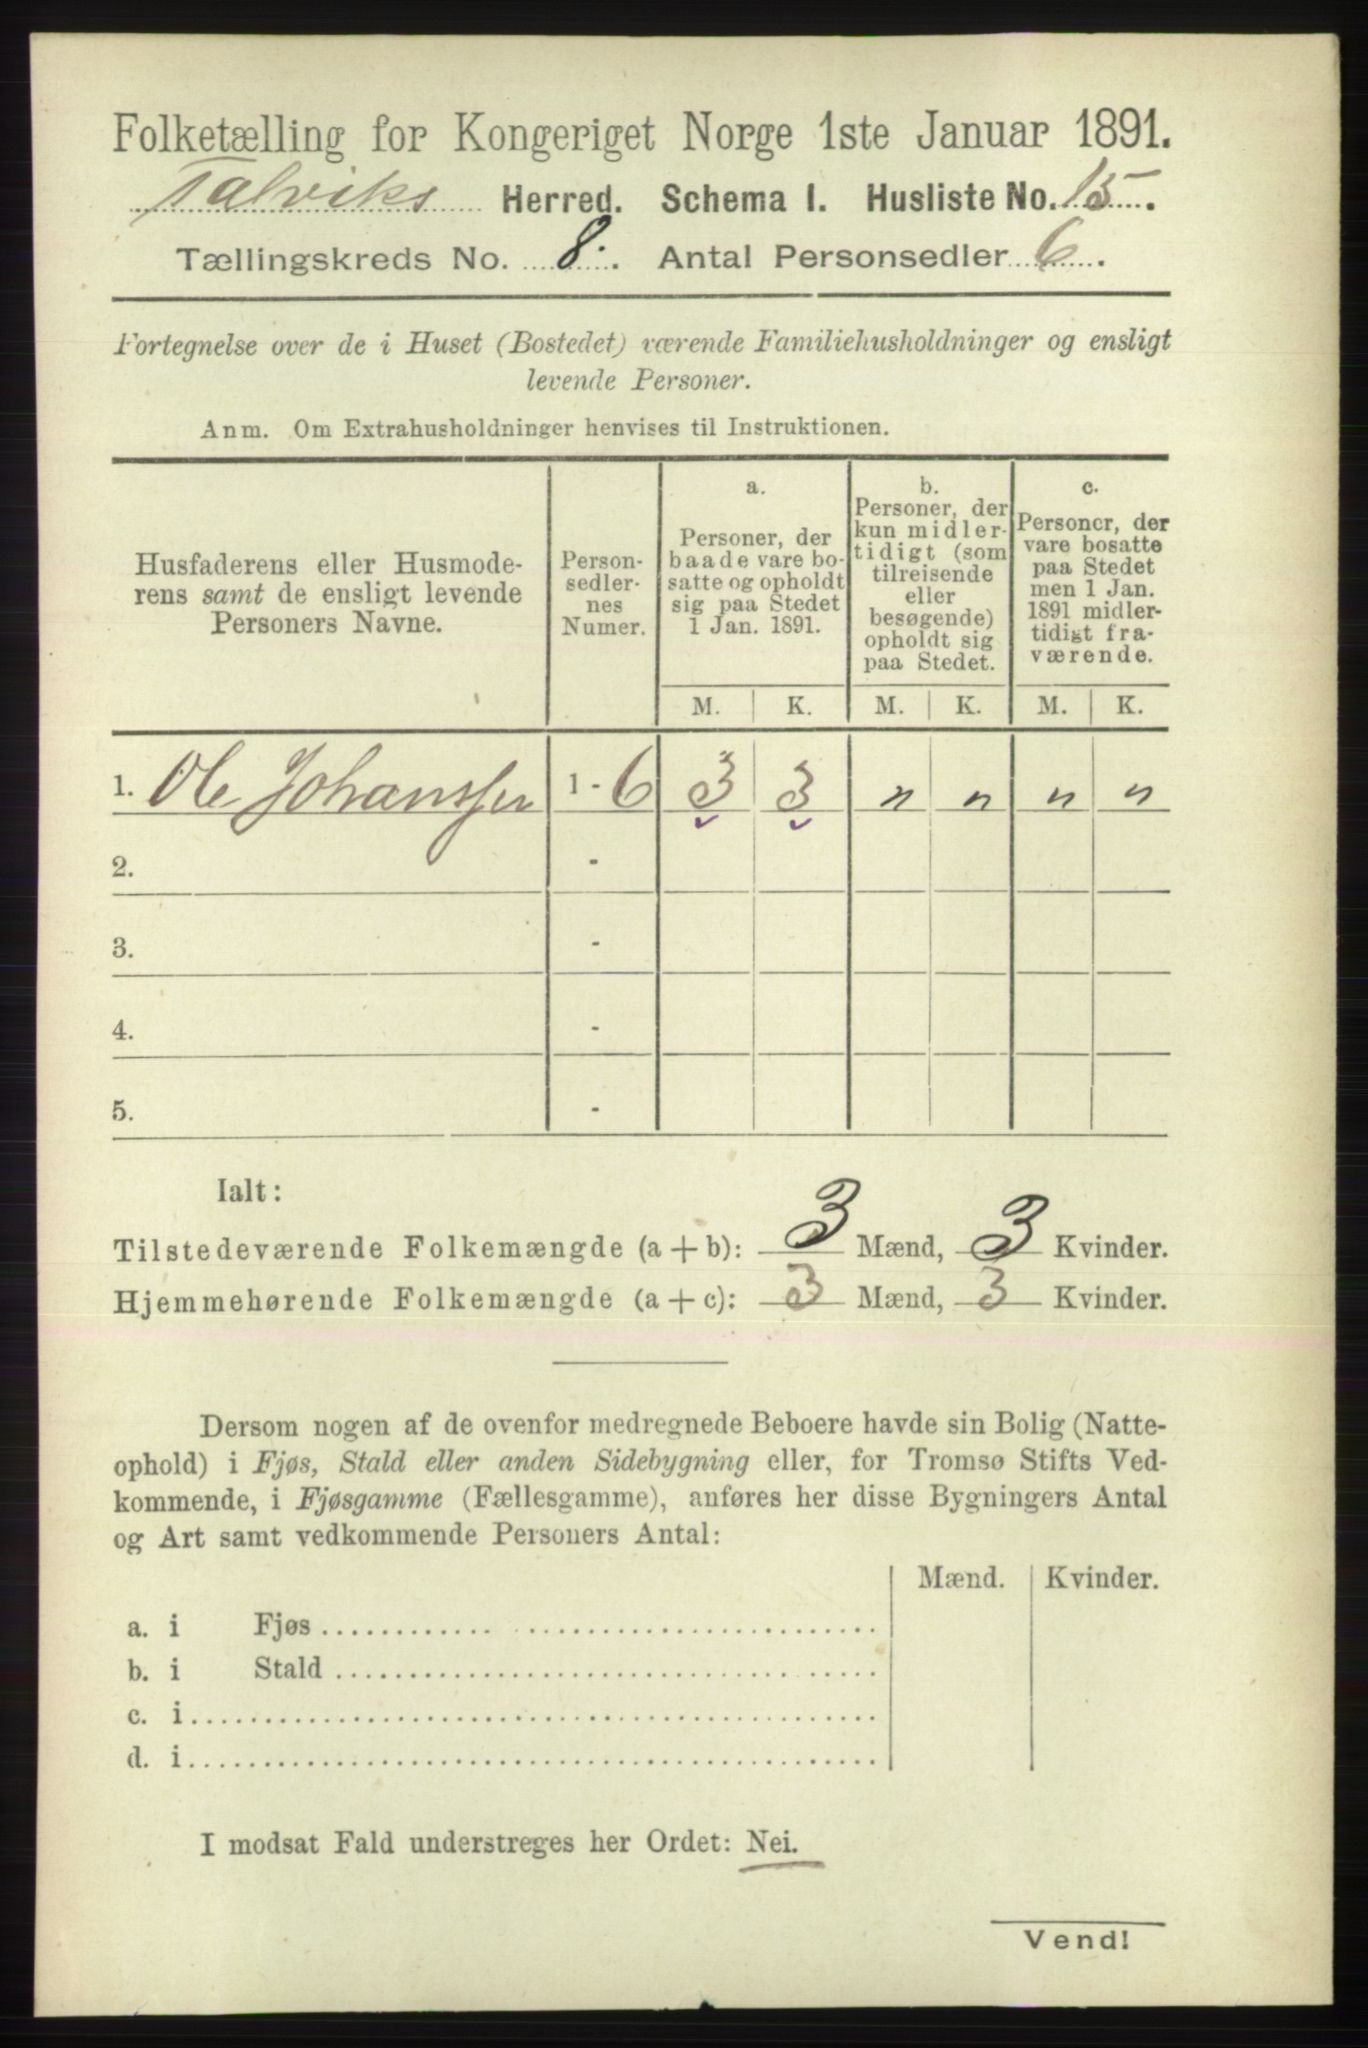 Folketælling for Kongeriget Norge 1ste Januar 1891.
Talviks Herred. Schema I. Husliste No. 15.
Tællingskreds No. 8. Antal Personsedler 6.
Fortegnelse over de i Huset (Bostedet) værende Familiehusholdninger og ensligt
levende Personer.
Anm. Om Extrahusholdninger henvises til Instruktionen.
Husfaderens eller Husmode-
rens samt de ensligt levende
Personers Navne.
Person-
sedler-
nes
Numer.
a.
Personer, der
baade vare bo-
satte og opholdt
sig paa Stedet
1 Jan. 1891.
b.
Personer, der
kun midler-
tidigt (som
tilreisende
eller
besøgende)
opholdt sig
paa Stedet.
c.
Personer, der
vare bosatte
paa Stedet
men 1 Jan.
1891 midler-
tidigt fra-
værende.
M. K. M. K. M. K.
1. Ole Johanssen 1 - 6 3 3 " " " "
2. -
3. -
4. -
5. -
Ialt:
Tilstedeværende Folkemængde (a + b): 3 Mænd, 3 Kvinder.
Hjemmehørende Folkemængde (a + c): 3 Mænd, 3 Kvinder.
Dersom nogen af de ovenfor medregnede Beboere havde sin Bolig (Natte-
ophold) i Fjøs, Stald eller anden Sidebygning eller, for Tromsø Stifts Ved-
kommende, i Fjøsgamme (Fællesgamme), anføres her disse Bygningers Antal
og Art samt vedkommende Personers Antal:
Mænd. Kvinder.
a. i Fjøs
b. i Stald
c. i
d. i
I modsat Fald understreges her Ordet: Nei.
Vend!